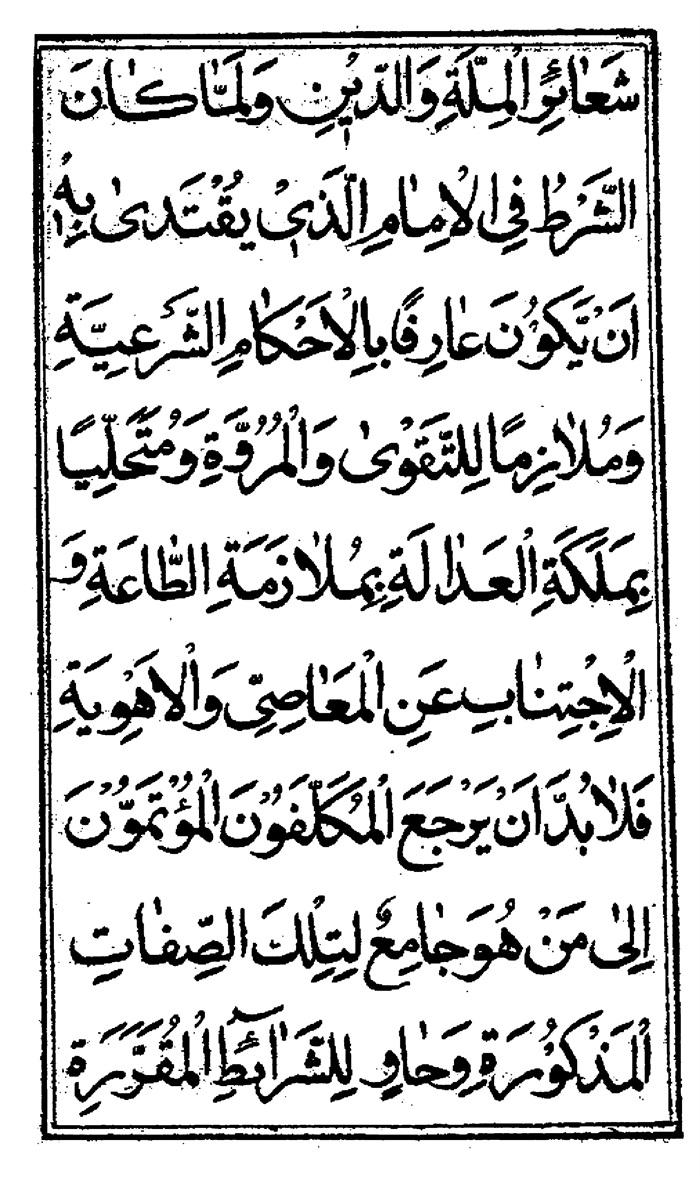 شَعٰائِرِ الْمِلَّةِ وَالدّيٖنِ وَلَمّٰا كٰانَ
الشَّرْطُ فِي الْاِمٰامِ الَّذىٖ يُقْتَدىٰ بِهٖ
اَنْ يَكُوْنَ عٰارِفًا بِالْاَحْكٰامِ الشَّرْعِيَّةِ
وَمُلٰازِمًا لِلتَّقْوىٰ وَالْمُرُوَّةِ وَمُتَحَلِّيًا
بِمَلَكَةِ الْعَدٰالَةِ بِمُلٰازَمَةِ الطّٰاعَةِ وَ
الْاِجْتِنٰابِ عَنِ الْمَعٰاصِيّ وَالْاَهْوِيَةِ
فَلٰا بُدَّ اَنْ يَرْجَعَ الْمُكَلَّفُوْنَ الْمُؤْتَمُّوْنَ
اِلىٰ مَنْ هُوَ جٰامِعٌ لِتِلْكَ الصِّفٰاتِ
الْمَذْكُوْرَةِ وَحٰاوٍ لِلشَّرٰائِطِ الْمُقَرَّرَةِ